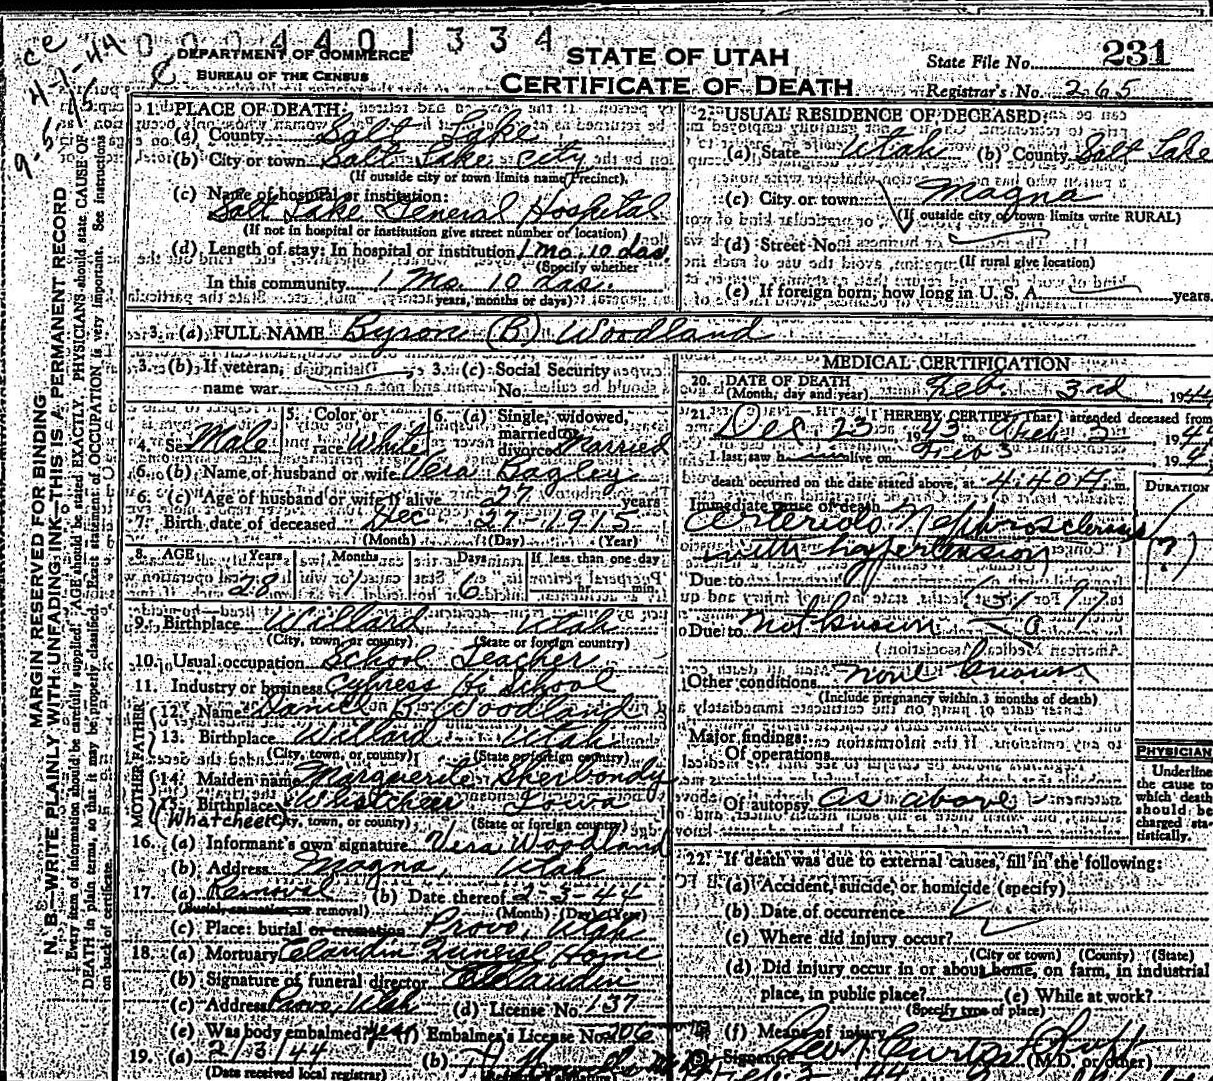 ce
4-7-44
9-5/15
0004401334
DEPARTMENT OF COMMERCE
BUREAU OF THE CENSUS
STATE OF UTAH
CERTIFICATE OF DEATH
State File No. 231
Registrar's No. 265
MARGIN RESERVED FOR BINDING
N. B.—WRITE PLAINLY WITH UNFADING INK—THIS IS A PERMANENT RECORD
Every item of information should be carefully supplied. AGE should be stated EXACTLY. PHYSICIANS should state CAUSE OF
DEATH in plain terms, so that it may be properly classified. Exact statement of OCCUPATION is very important. See instructions
on back of certificate.
1. PLACE OF DEATH
(a) County Salt Lake
(b) City or town Salt Lake City
(If outside city or town limits name Precinct)
(c) Name of hospital or institution:
Salt Lake General Hospital
(If not in hospital or institution give street number or location)
(d) Length of stay: In hospital or institution 1 mo. 10 das.
(Specify whether
In this community 1 Mo. 10 das.
years, months or days)
2. USUAL RESIDENCE OF DECEASED:
(a) State Utah (b) County Salt Lake
(c) City or town Magna
(If outside city or town limits write RURAL)
(d) Street No.
(If rural give location)
(e) If foreign born, how long in U. S. A. years.
3. (a) FULL NAME Byron (B) Woodland
3. (b) If veteran,
name war
3. (c) Social Security
No.
4. Sex Male
5. Color or
race White
6. (a) Single, widowed,
married or
divorced Married
6. (b) Name of husband or wife Vera Bagley
6. (c) Age of husband or wife if alive 27 years
7. Birth date of deceased Dec 27-1915
(Month) (Day) (Year)
8. AGE Years Months Days If less than one day
28 1 6 hr. min.
9. Birthplace Willard Utah
(City, town, or county) (State or foreign country)
10. Usual occupation School Teacher
11. Industry or business Cypress Hi School
FATHER
12. Name Daniel B. Woodland
13. Birthplace Willard Utah
(City, town, or county) (State or foreign country)
MOTHER
14. Maiden name Marguerite Sherbondy
15. Birthplace Whatcheer Iowa
(Whatcheer) (City, town, or county) (State or foreign country)
16. (a) Informant's own signature Vera Woodland
(b) Address Magna, Utah
17. (a) Removal (b) Date thereof 2-3-44
(Burial, cremation, or removal) (Month) (Day) (Year)
(c) Place: burial or cremation Provo, Utah
18. (a) Mortuary Claudin Funeral Home
(b) Signature of funeral director Claudin
(c) Address Provo, Utah (d) License No. 137
(e) Was body embalmed? yes (f) Embalmer's License No. 206
19. (a) 2/3/44 (b)
(Date received local registrar) (Registrar's signature)
MEDICAL CERTIFICATION
20. DATE OF DEATH
(Month, day and year) Feb. 3rd 1944
21. I HEREBY CERTIFY That I attended deceased from
Dec 23 1943 to Feb 3 1944
I last saw him alive on Feb 3 194
death occurred on the date stated above, at 4:40 m.
DURATION
Immediate cause of death
Arteriolo Nephrosclerosis
with hypertension
(?)
Due to
Due to not known
Other conditions none known
(Include pregnancy within 3 months of death)
Major findings:
Of operations
Of autopsy as above
PHYSICIAN
Underline
the cause to
which death
should be
charged sta-
tistically.
22. If death was due to external causes, fill in the following:
(a) Accident, suicide, or homicide (specify)
(b) Date of occurrence
(c) Where did injury occur?
(City or town) (County) (State)
(d) Did injury occur in or about home, on farm, in industrial
place, in public place? (e) While at work?
(Specify type of place)
(f) Means of injury
23. Signature
(M.D. or other)